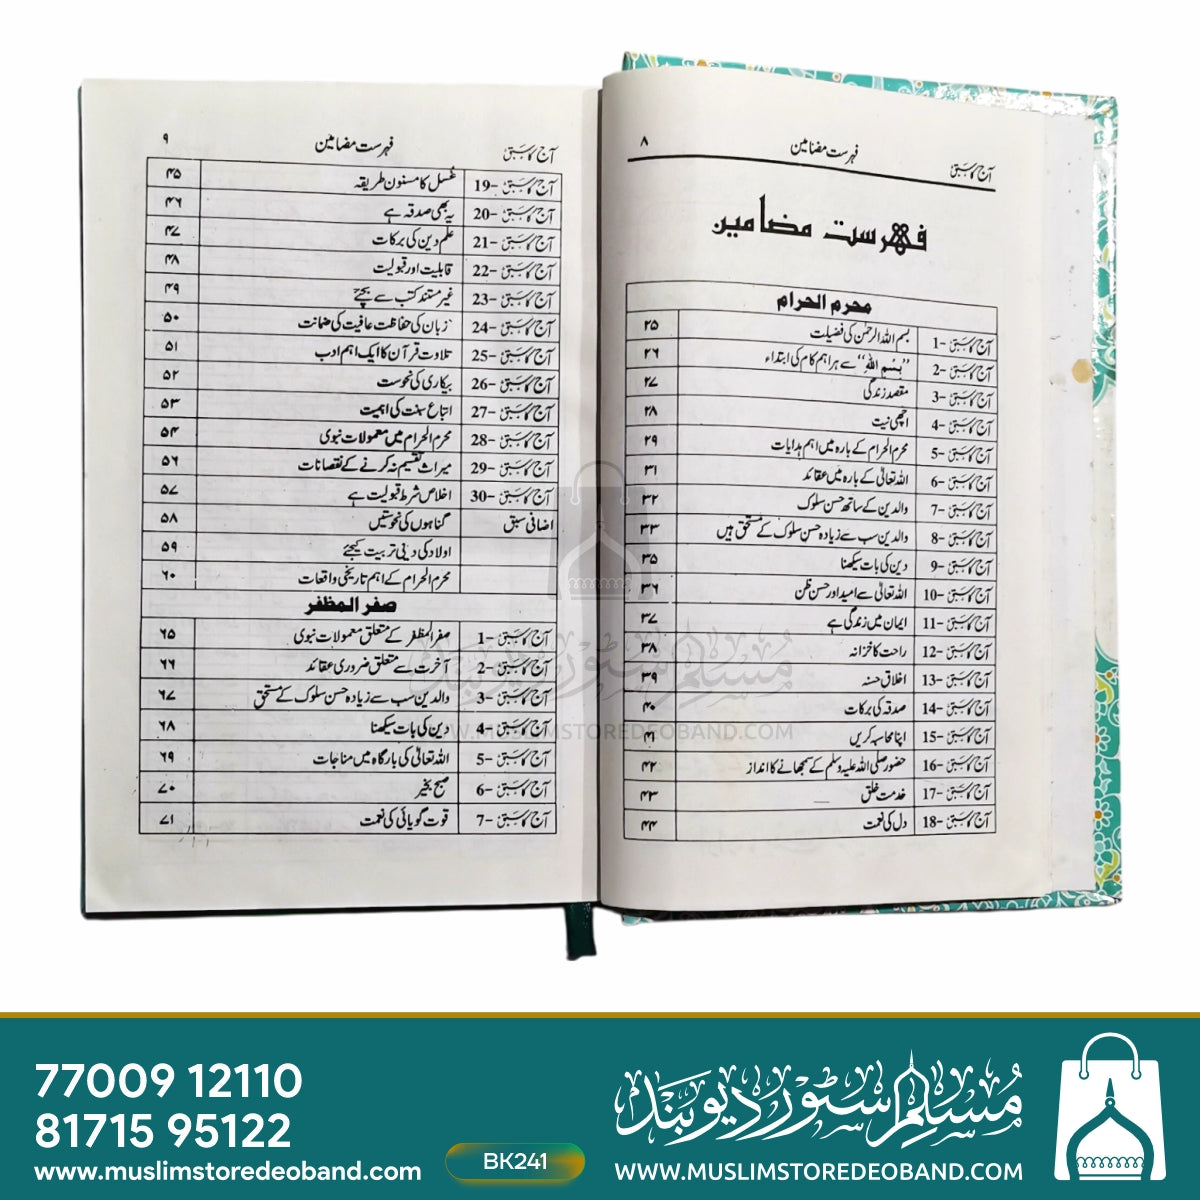 آج کا سبق فہرست مضامین ۸
فہرست مضامین
محرم الحرام
آج کا سبق -1 بسم اللہ الرحمٰن کی فضیلت ۲۵
آج کا سبق -2 ’’بِسْمِ اللہِ‘‘ سے ہر اہم کام کی ابتداء ۲۶
آج کا سبق -3 مقصد زندگی ۲۷
آج کا سبق -4 اچھی نیت ۲۸
آج کا سبق -5 محرم الحرام کے بارہ میں اہم ہدایات ۲۹
آج کا سبق -6 اللہ تعالیٰ کے بارہ میں عقائد ۳۱
آج کا سبق -7 والدین کے ساتھ حسن سلوک ۳۲
آج کا سبق -8 والدین سب سے زیادہ حسن سلوک کے مستحق ہیں ۳۳
آج کا سبق -9 دین کی بات سیکھنا ۳۵
آج کا سبق -10 اللہ تعالیٰ سے امید اور حسن ظن ۳۶
آج کا سبق -11 ایمان میں زندگی ہے ۳۷
آج کا سبق -12 راحت کا خزانہ ۳۸
آج کا سبق -13 اخلاق حسنہ ۳۹
آج کا سبق -14 صدقہ کی برکات ۴۰
آج کا سبق -15 اپنا محاسبہ کریں ۴۱
آج کا سبق -16 حضور صلی اللہ علیہ وسلم کے سمجھانے کا انداز ۴۲
آج کا سبق -17 خدمت خلق ۴۳
آج کا سبق -18 دل کی نعمت ۴۴
آج کا سبق فہرست مضامین ۹
آج کا سبق -19 غسل کا مسنون طریقہ ۴۵
آج کا سبق -20 یہ بھی صدقہ ہے ۴۶
آج کا سبق -21 علم دین کی برکات ۴۷
آج کا سبق -22 قابلیت اور قبولیت ۴۸
آج کا سبق -23 غیر مستند کتب سے بچئے ۴۹
آج کا سبق -24 زبان کی حفاظت عافیت کی ضمانت ۵۰
آج کا سبق -25 تلاوت قرآن کا ایک اہم ادب ۵۱
آج کا سبق -26 بیکاری کی نحوست ۵۲
آج کا سبق -27 اتباع سنت کی اہمیت ۵۳
آج کا سبق -28 محرم الحرام میں معمولات نبوی ۵۴
آج کا سبق -29 میراث تقسیم نہ کرنے کے نقصانات ۵۶
آج کا سبق -30 اخلاص شرط قبولیت ہے ۵۷
اضافی سبق گناہوں کی نحوستیں ۵۸
اولاد کی دینی تربیت کیجئے ۵۹
محرم الحرام کے اہم تاریخی واقعات ۶۰
صفر المظفر
آج کا سبق -1 صفر المظفر کے متعلق معمولات نبوی ۶۵
آج کا سبق -2 آخرت سے متعلق ضروری عقائد ۶۶
آج کا سبق -3 والدین سب سے زیادہ حسن سلوک کے مستحق ۶۷
آج کا سبق -4 دین کی بات سیکھنا ۶۸
آج کا سبق -5 اللہ تعالیٰ کی بارگاہ میں مناجات ۶۹
آج کا سبق -6 صبح بخیر ۷۰
آج کا سبق -7 قوت گویائی کی نعمت ۷۱
مسلم سٹور دیوبند
WWW.MUSLIMSTOREDEOBAND.COM
77009 12110
81715 95122
www.muslimstoredeoband.com
BK241
مسلم سٹور دیوبند
WWW.MUSLIMSTOREDEOBAND.COM